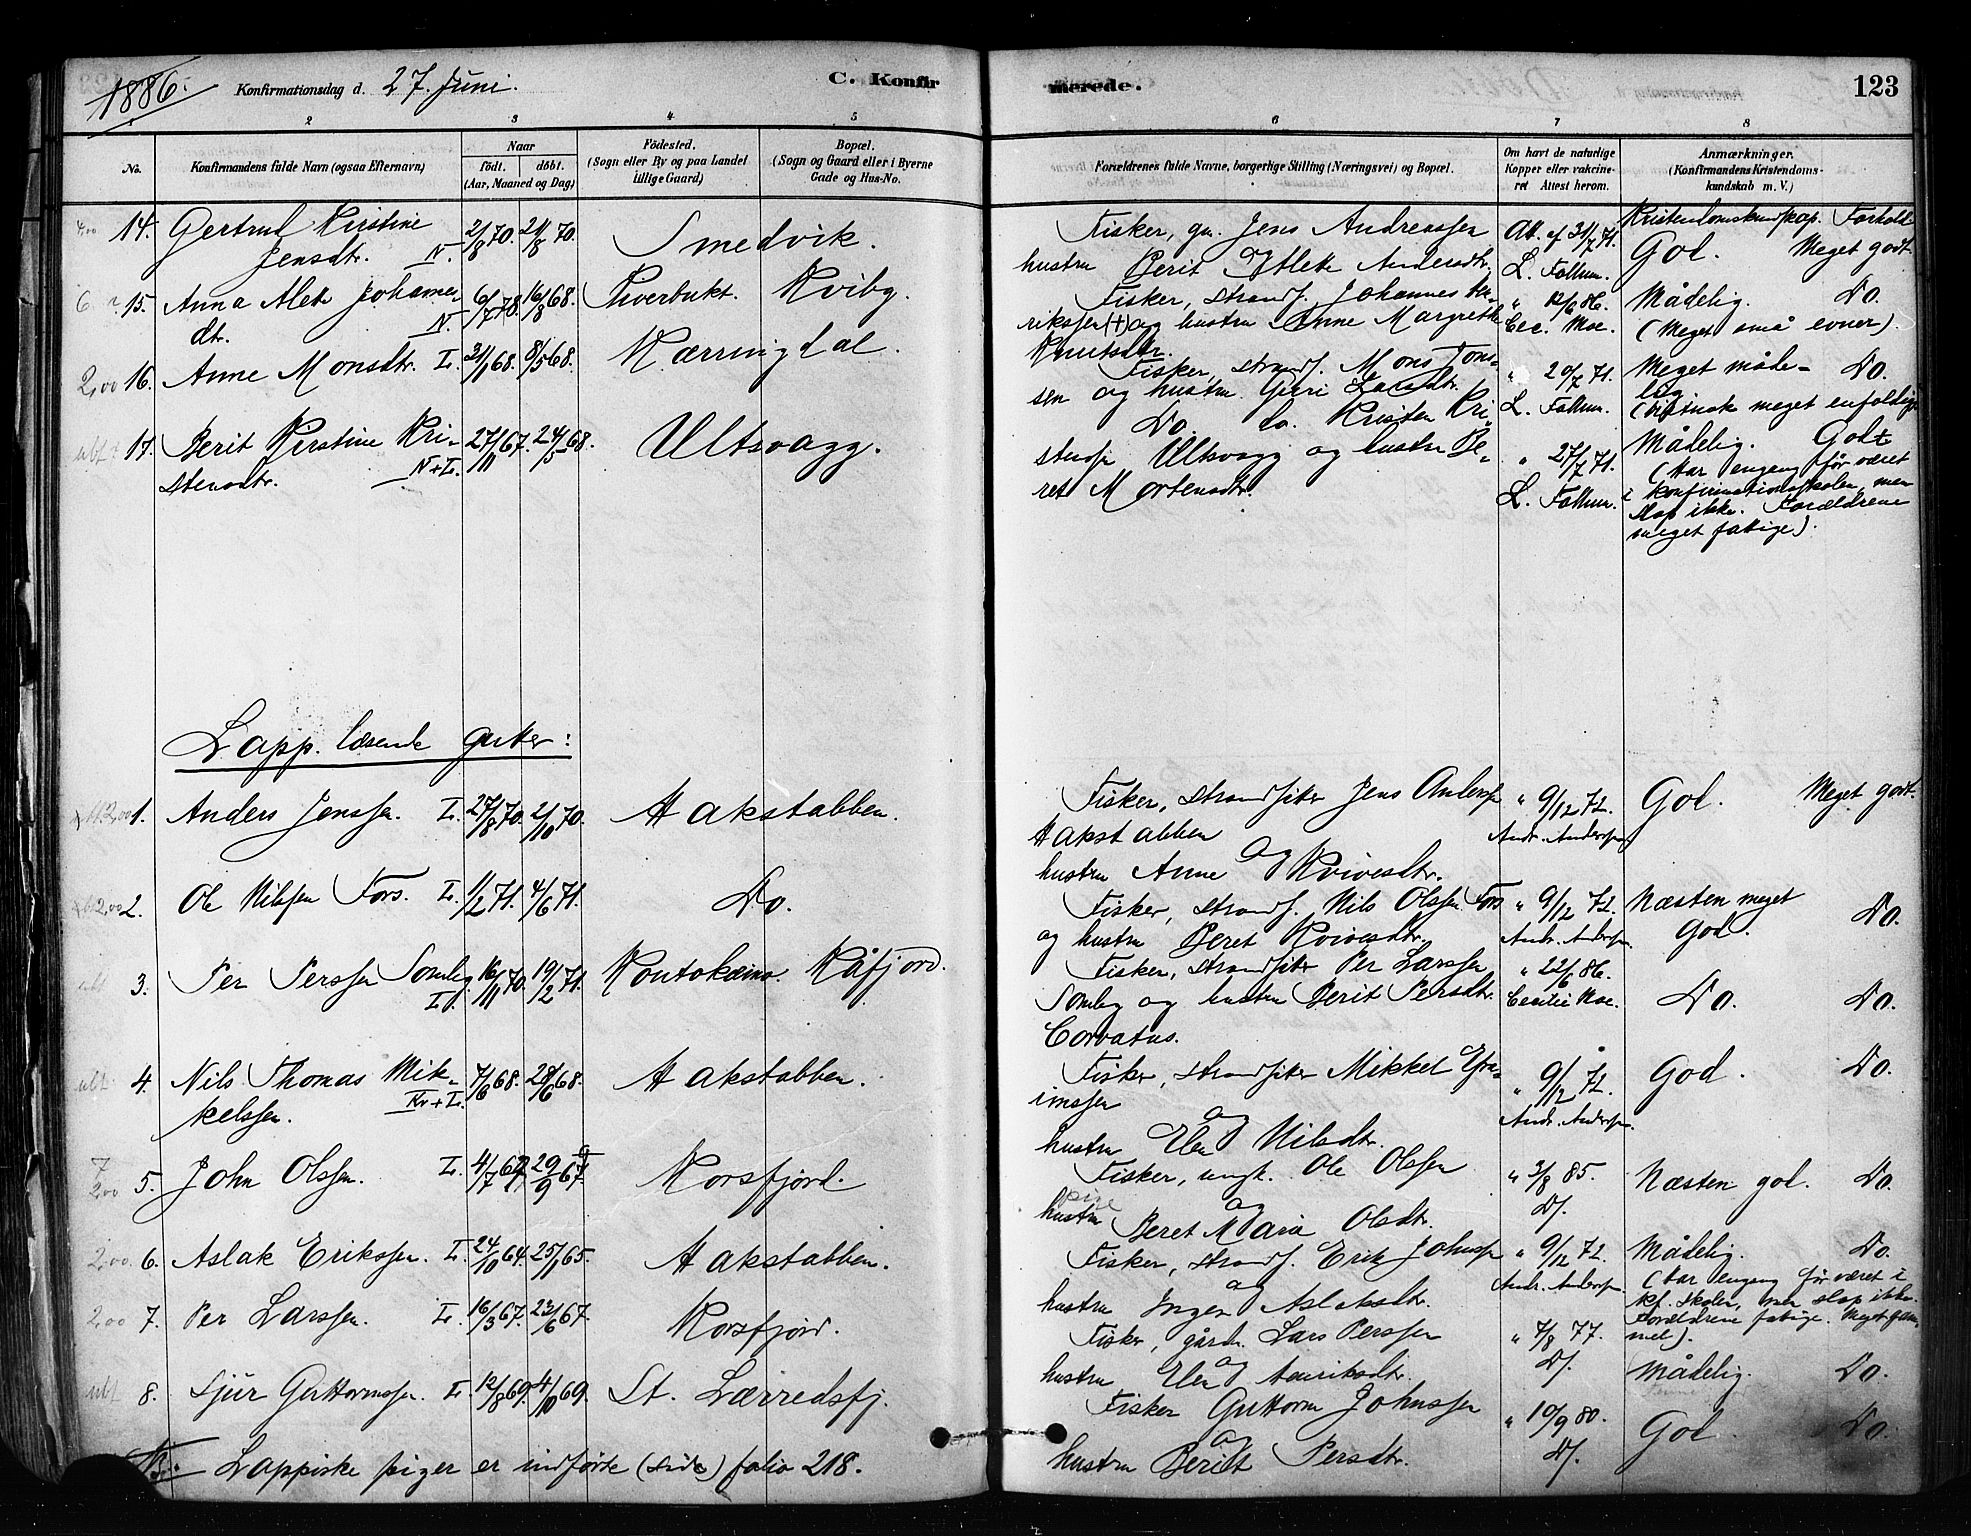 1886.
Konfirmationsdag d. 27. Juni.
C. Konfirmerede.
123
1 2 3 4 5 6 7 8
No.
Konfirmandens fulde Navn (ogsaa Efternavn)
Naar
födt. döbt.
(Aar, Maaned og Dag)
Födested.
(Sogn eller By og paa Landet
tillige Gaard)
Bopæl.
(Sogn og Gaard eller i Byerne
Gade og Hus-No.
Forældrenes fulde Navne, borgerlige Stilling (Næringsvei) og Bopæl.
Om havt de naturlige
Kopper eller vakcine-
ret Attest herom.
Anmærkninger.
(Konfirmandens Kristendoms-
kundskab m. V.)
Kristendomskundskap. Forhold
14. Gertrud Kristine
Jensdtr. N.
2/8 70. 21/8 70.
Smedvik.
Fisker, gu. Jens Andreassen
hustru Berit Andersdtr.
At. af 31/7 71.
L. Fallum.
God. Meget godt.
15. Anna Alet Johannes-
dtr. N.
6/7 78. 16/8 68.
Tverbukt. Kviby.
Fisker, strands. Johannes Hen-
rikssen (+) og hustru Anne Margrethe
Knutsdtr.
" 12/6 86.
Cec. Moe.
Mådelig. Do.
(Meget små evner).
2,00 16. Anne Monsdtr. L.
31/1 68. 8/5 68.
Kærringdal.
Fisker, strands. Mons Jons-
sen og hustru Guri Larsdtr.
" 20/7 71.
L. Fallum.
Meget måde- Do.
lig
meget enfoldig
17. Berit Kerstine Kri-
stensdtr. N+L.
27/11 67. 24/5 68.
Ultsvagg.
Do. Do. Kristen Kri-
stensen Ultsvagg og hustru Be-
ret Mortensdtr.
" 27/7 71.
L. Fallum.
Mådelig. Godt
(Har engang før været
i konfirmationsskolen, men
slap ikke. Forældrene
meget fattige).
Lapp. læsende gutter:
1. Anders Jenssen. L.
27/8 70. 2/10 70.
Hakstabben.
Fisker, strandsitter Jens Anderssen
Hakstabben
og
hustru Anne Kvivesdtr.
" 9/12 72.
Andr. Anderssen
God. Meget godt.
2. Ole Nilssen Fors. L.
1/2 71. 4/6 71.
Do.
Fisker, strands. Nils Olssen Fors
og hustru Beret Kvivesdtr.
" 9/12 72.
Andr. Anderssen.
Næsten meget
God. Do.
3. Per Perssen Somby
L.
16/11 70. 19/2 71.
Kontokæino. Kåfjord.
Fisker, strandsitter Per Larssen
Somby og hustru Berit Persdtr.
Corvatus.
" 22/6 86.
Cecilie Moe.
Do. Do.
4. Nils Thomas Mik-
kelssen. Kv+L.
7/6 68. 28/6 68.
Hakstabben.
Fisker, strandsitter Mikkel Efra-
imssen
og
hustru Elen Nilsdtr.
" 9/12 72.
Andr. Anderssen.
God. Do.
2,00 5. John Olssen. L.
4/7 67. 29/9 67.
Korsfjord.
Fisker, ungk. Ole Olssen
og
pige
hustru Beret Maria Olsdtr.
" 3/8 85.
Df.
Næsten god. Do.
2,00. 6. Aslak Erikssen. L.
24/10 64. 25/1 65.
Hakstabben.
Fisker, strands. Erik Johnssen
og
hustru Inger Aslaksdtr.
" 9/12 72.
Andr. Anderssen.
Mådelig. Do.
(Har engang før været i
kf. skolen, men slap ikke.
Forældrene fattige. Meget gam-
mel).
2,00 7. Per Larssen. L.
16/3 67. 23/6 67.
Korsfjord.
Fisker, gårdr. Lars Perssen
og
hustru Elen Henriksdtr.
" 7/8 77.
Df.
Mådelig. Do.
8. Sjur Guttormssen. L.
12/8 69. 4/10 69.
St. Lærredsfj.
Fisker Guttorm Johnssen
og
hustru Berit Persdtr.
" 10/9 80.
Df.
God. Do.
NB.: Lappiske piger er indførte (side) folio 218.